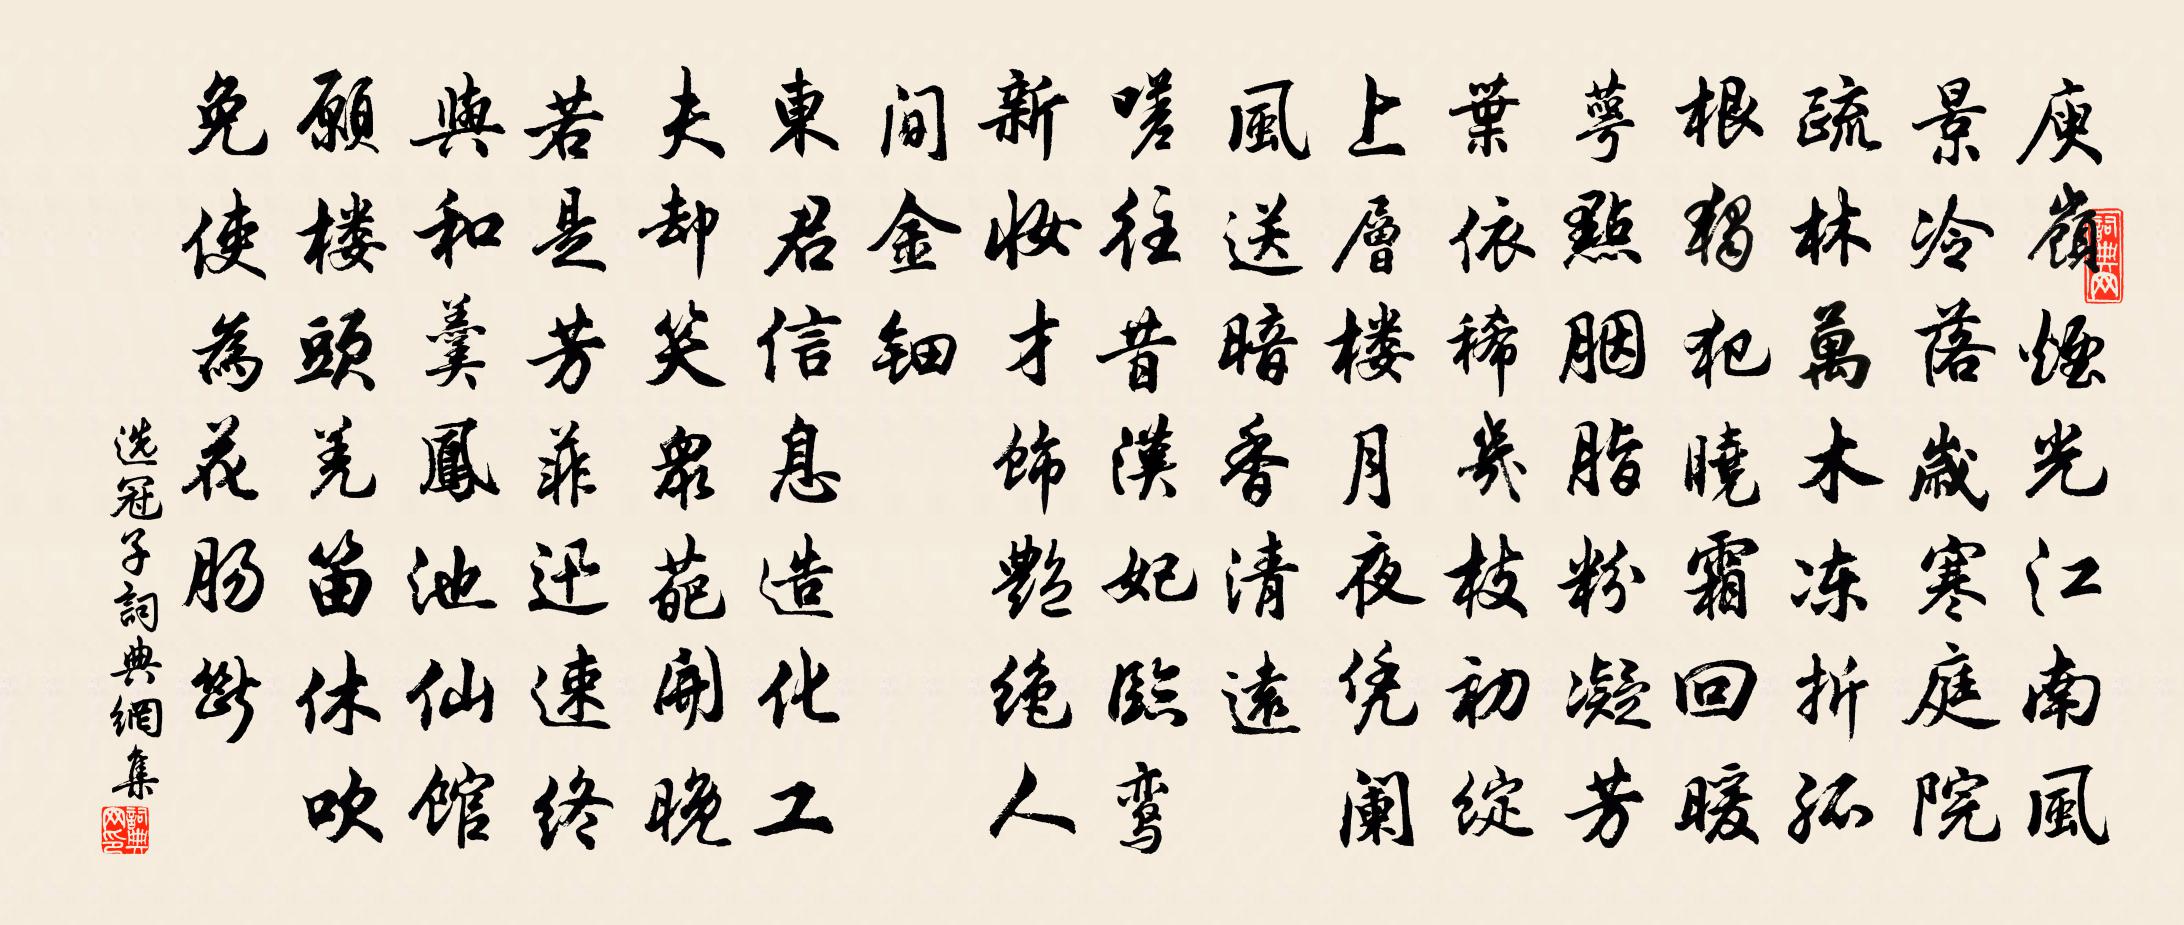 庾嶺煙光江南風
景冷落歲寒庭院
疏林萬木冻折孤
根獨犯曉霜回暖
萼點胭脂粉凝芳
葉依稀幾枝初綻
上層楼月夜凭阑
風送暗香清遠
嗟往昔漢妃臨鸾
新妝才飾艷绝人
间金钿
東君信息造化工
夫却笑衆葩開晚
若是芳菲迅速终
與和羹鳳池仙馆
願楼頭羌笛休吹
免使為花肠斷
选冠子詞典網集
詞典网
詞典网印